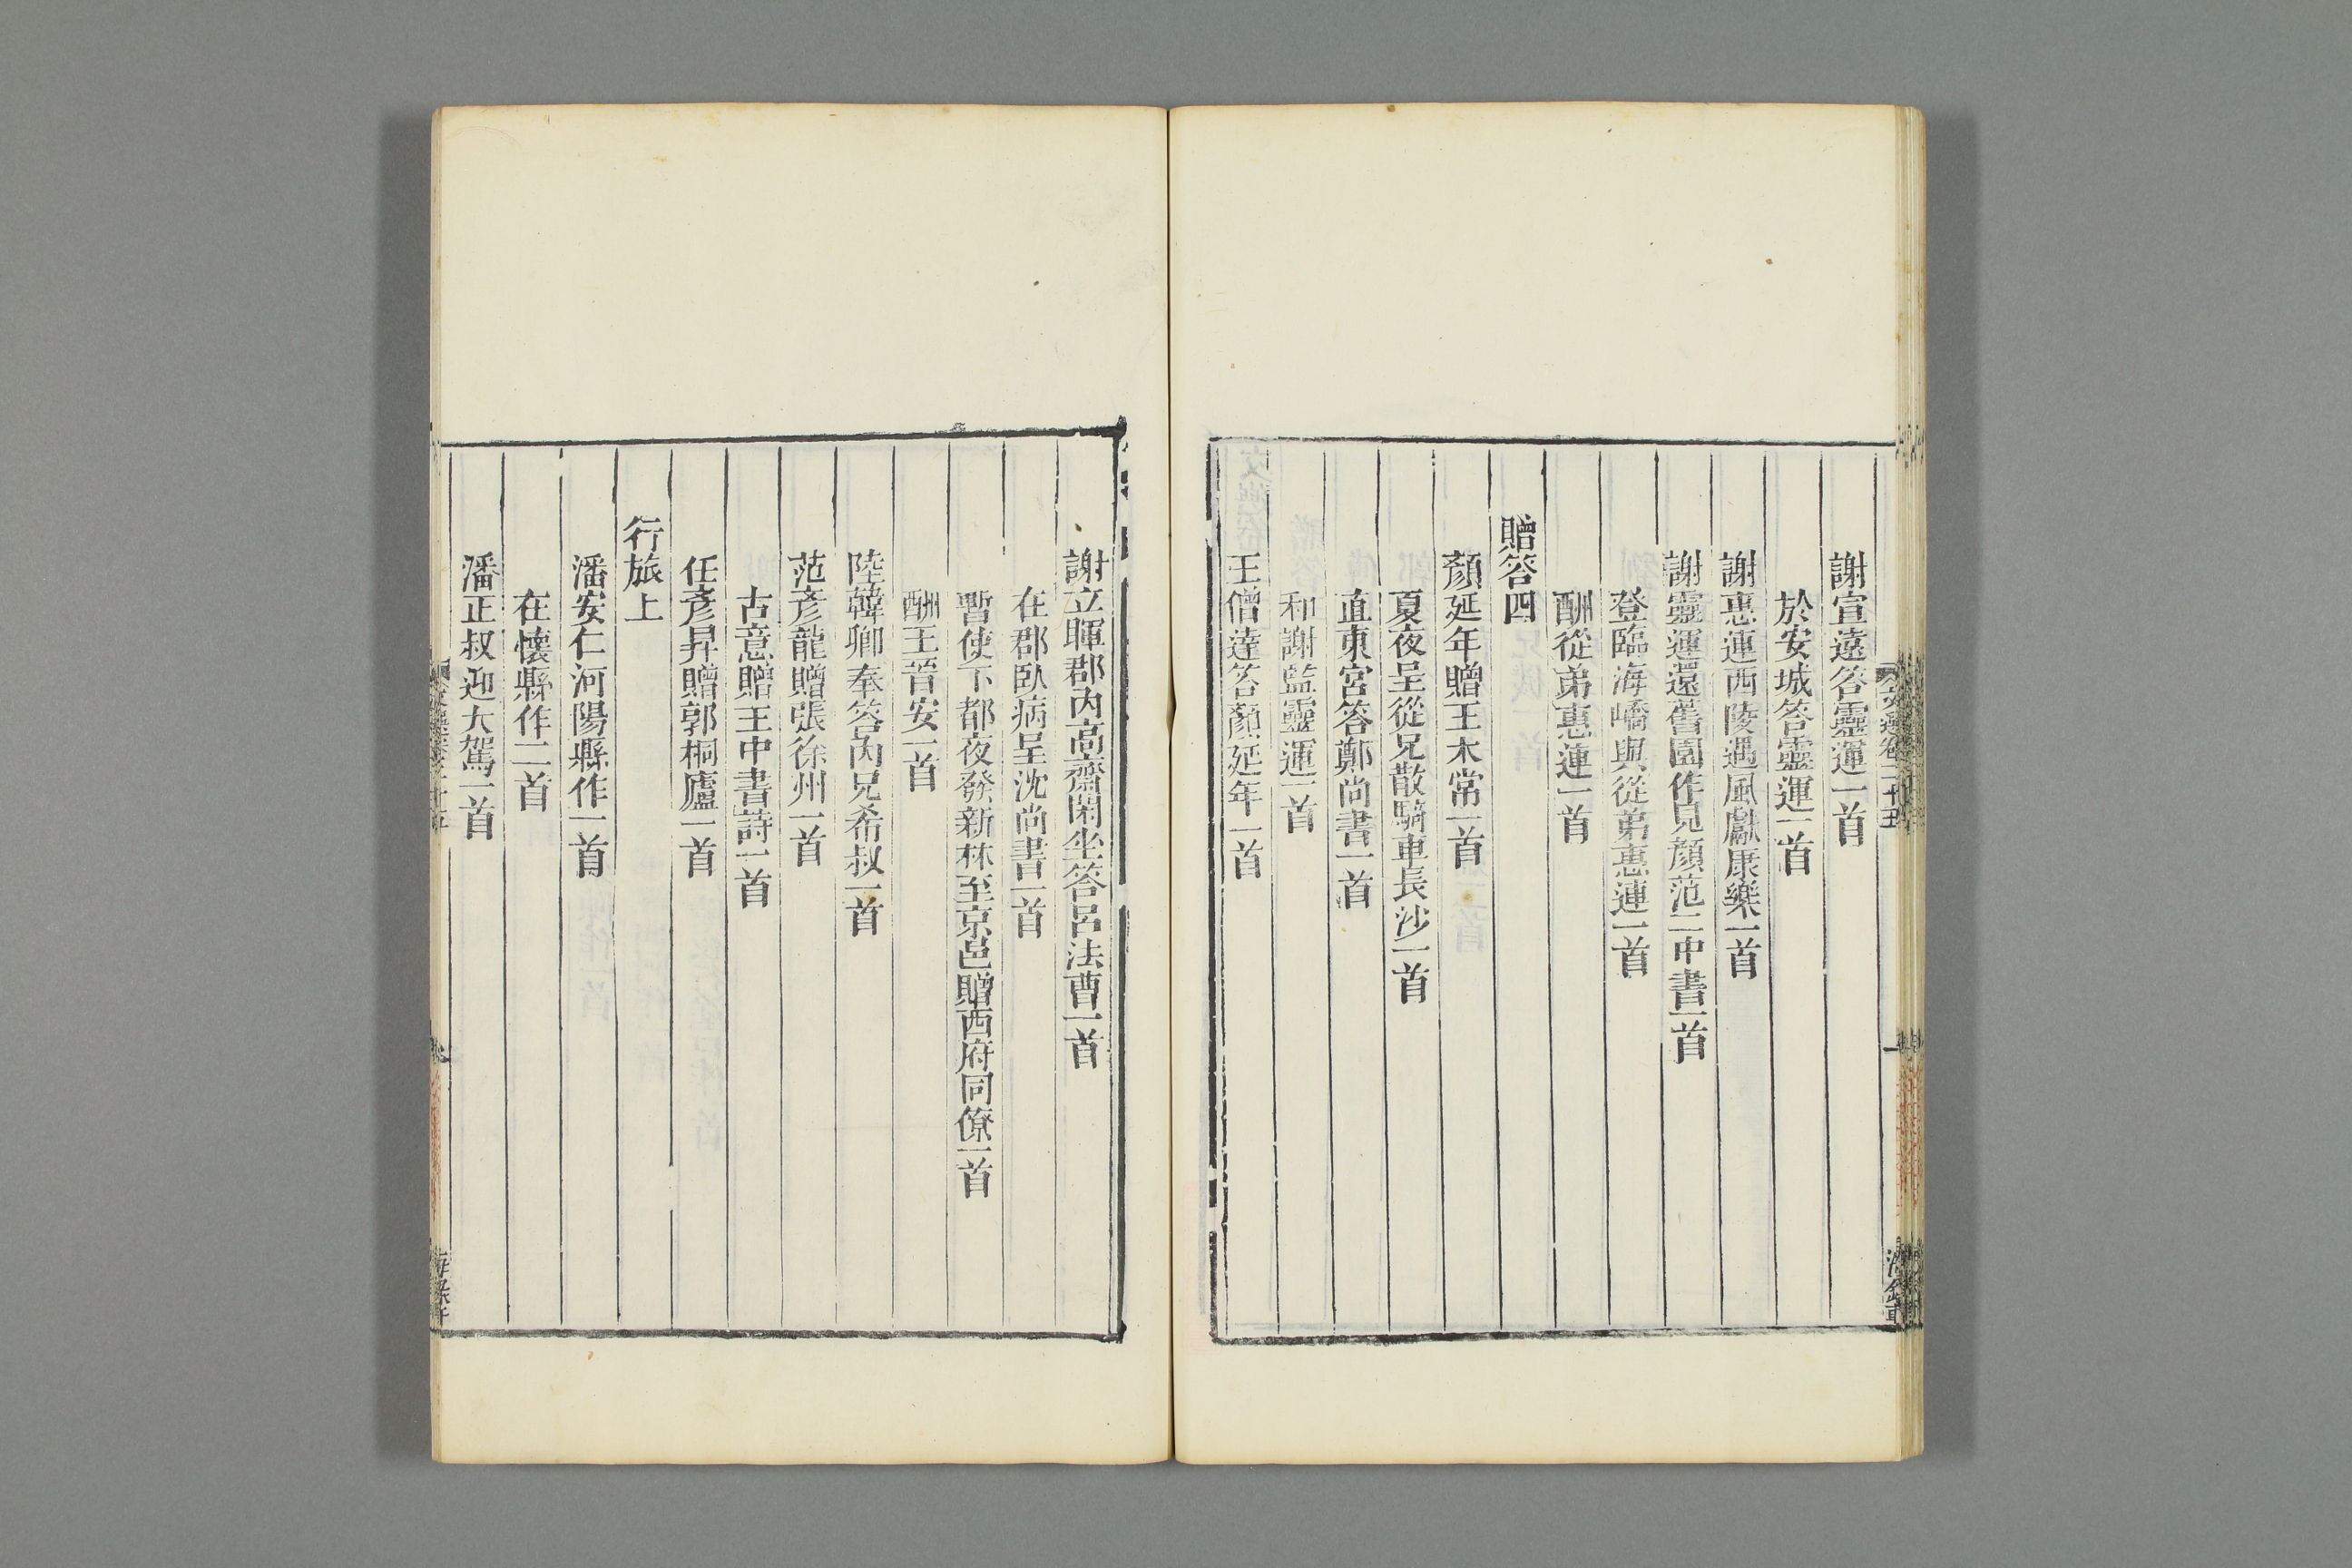 文選卷二十五
謝宣遠答靈運一首
於安城答靈運一首
謝惠連西陵遇風獻康樂一首
謝靈運還舊園作見顏范二中書一首
登臨海嶠與從弟惠連一首
酬從弟惠連一首
贈答四
顏延年贈王太常一首
夏夜呈從兄散騎車長沙一首
直東宮答鄭尚書一首
和謝監靈運一首
王僧達答顏延年一首
謝玄暉郡內高齋閑坐答呂法曹一首
在郡臥病呈沈尚書一首
暫使下都夜發新林至京邑贈西府同僚一首
酬王晉安一首
陸韓卿奉答內兄希叔一首
范彥龍贈張徐州一首
古意贈王中書詩一首
任彥昇贈郭桐廬一首
行旅上
潘安仁河陽縣作一首
在懷縣作二首
潘正叔迎大駕一首